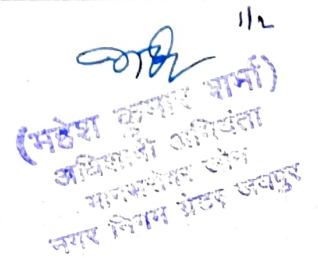 1/2
(महेश कुमार शर्मा)
अधिशाषी अभियंता
मानसरोवर जोन
नगर निगम ग्रेटर जयपुर